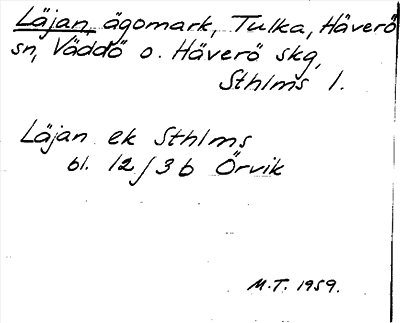 Läjan, ägomark, Tulka, Häverö
sn, Väddö o. Häverö skg,
Sthlms l.
Läjan ek Sthlms
bl. 12/3b Örvik
M.T. 1959.